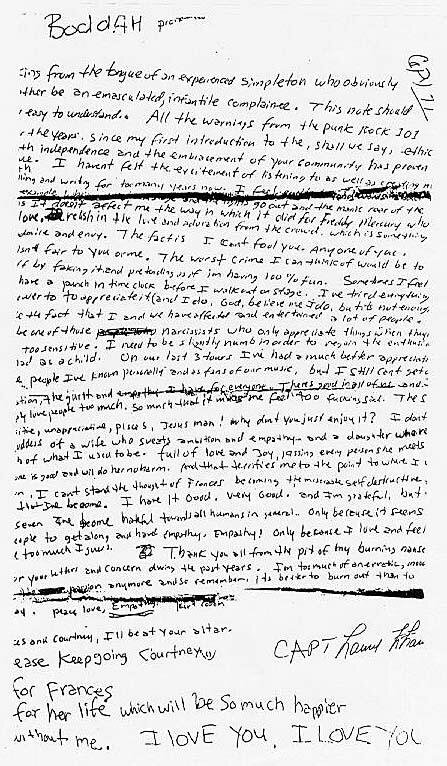 BoddAH
ing from the tongue of an experienced simpleton who obviously
ther be an emasculated, infantile complainee. This note should
easy to understand. All the warnings from the punk rock 101
the years. Since my first introduction to the, shall we say, ethic
th independence and the embracement of your community has proven
ue. I havent felt the excitement of listening to as well as creating
ing and writing for too many years now. I feel
lights go out and the manic roar of the
it doesnt affect me the way in which it did for Freddy Mercury who
love, relish in the love and adoration from the crowd. which is something
dmire and envy. The fact is I cant fool you. Any one of you.
isnt fair to you or me. The worst crime I can think of would be to
ff by faking it and pretending as if im having 100% fun. Sometimes I feel
have a punch in time clock before I walk out on stage. I've tried everything
ower to appreciate it (and I do, God, believe me I do, but it's not enough).
the fact that I and we have affected and entertained a lot of people.
be one of those narcissists who only appreciate things when they
too sensitive. I need to be slightly numb in order to regain the enthusia
had as a child. On our last 3 tours I've had a much better appreciati
people I've known personally and as fans of our music, but I still cant get
ation, the guilt and empathy I have for everyone. Theres good in all of us and
ply love people too much. So much that it makes me feel too fucking sad. The s
itive, unappreciative, pisces, Jesus man! why dont you just enjoy it? I dont
oddess of a wife who sweats ambition and empathy and a daughter who re
h of what I use to be. full of love and Joy, kissing every person she meets
one is good and will do her no harm. And that terrifies me to the point to where I
n. I cant stand the thought of Frances becoming the miserable self destructive,
that Ive become. I have it Good. very Good. and Im grateful, but
seven Ive become hateful towards all humans in general. Only because it seems
eople to get along and have empathy. Empathy! Only because I love and feel
e too much I guess. Thank you all from the pit of my burning nause
or your letters and concern during the past years. I'm too much of an erratic, moo
passion anymore and so remember, its better to burn out than to
ay. peace love, Empathy. Kurt Cobain
es and Courtney, I'll be at your altar.
ease Keep going Courtney
for Frances
for her life which will be so much happier
without me. I LOVE YOU. I LOVE YOU
CAPT